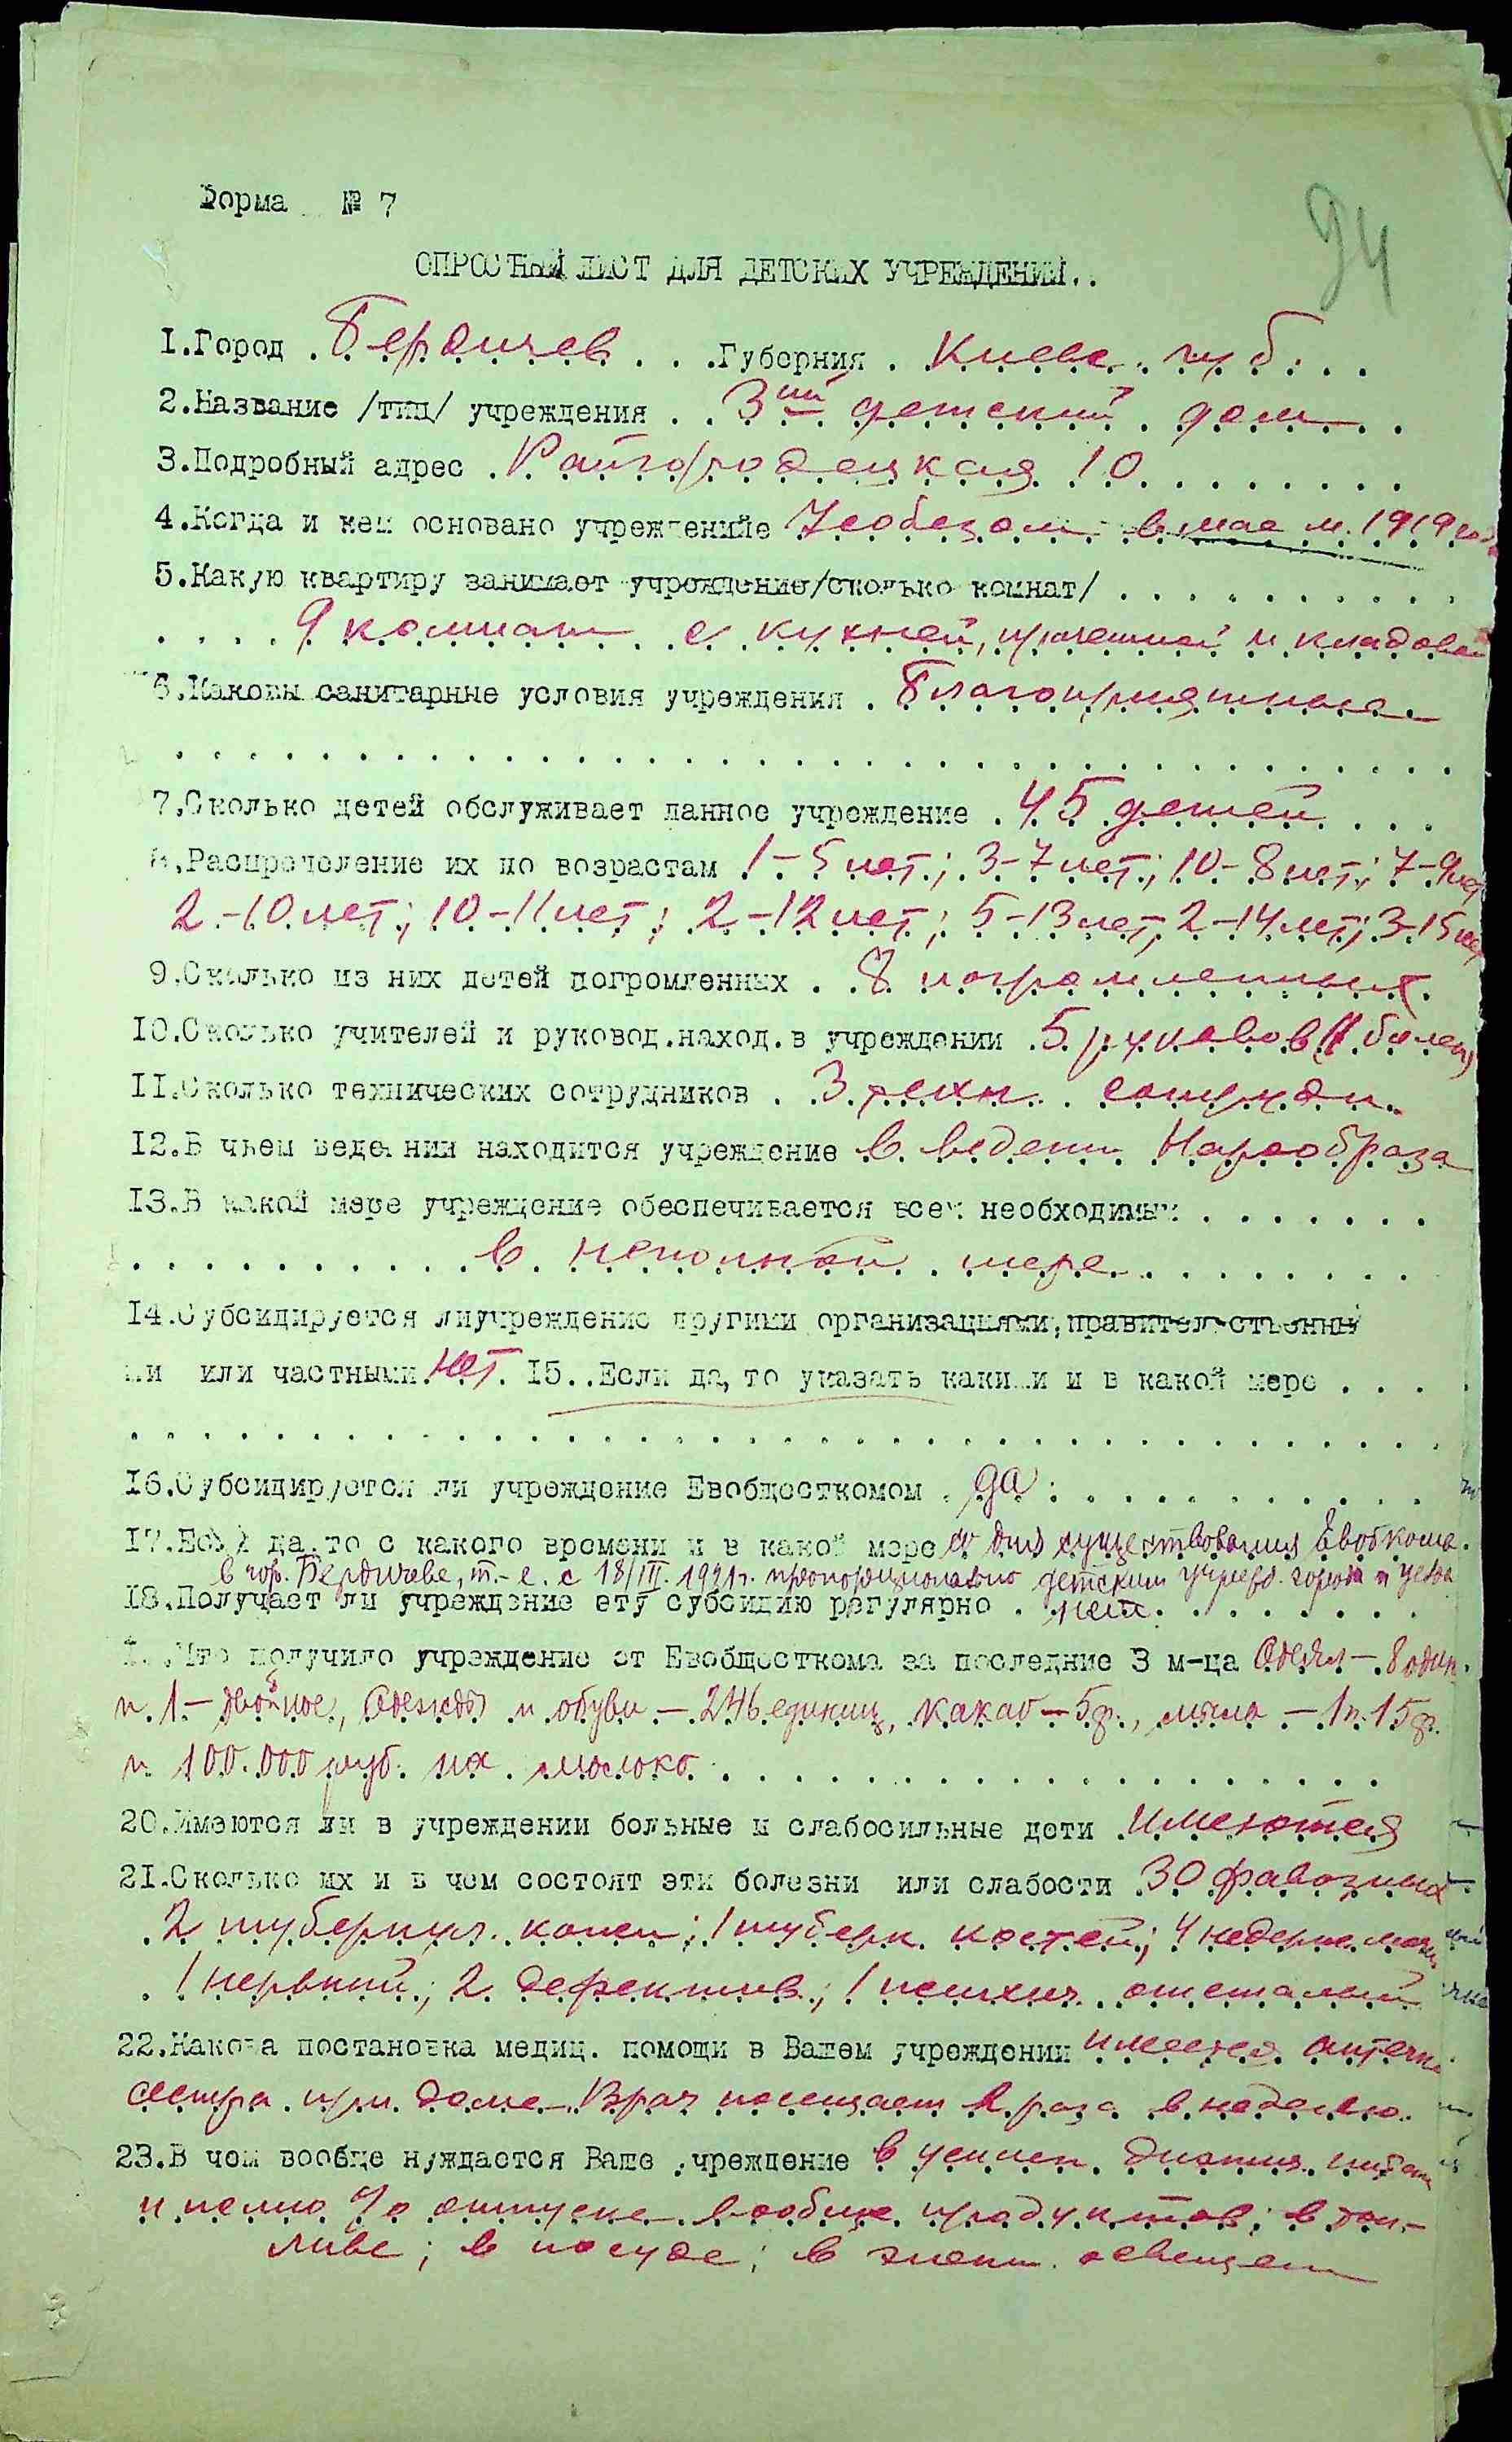 Форма № 7
94
ОПРОСНЫЙ ЛИСТ ДЛЯ ДЕТСКИХ УЧРЕЖДЕНИЙ..
1.Город . Бердичев . . .Губерния . Киевс. губ. . .
2.Название /тип/ учреждения . . 3ий детский дом . .
3.Подробный адрес . Райгородецкая 10 . . . . . . . .
4.Когда и кем основано учреждение Уеобезом в мае м. 1919 год
5.Какую квартиру занимает учреждение/сколько комнат/ . . . . . . . . . .
. . . . 9 комнат с кухней, и кладовой
6.Каковы санитарные условия учреждения . Благоприятные
. . . . . . . . . . . . . . . . . . . . . . . . . . . . . . . . . . . .
7.Сколько детей обслуживает данное учреждение . 45 детей . . .
8.Распрочеление их по возрастам 1-5 лет; 3-7 лет; 10-8 лет; 7-9 лет
2-10 лет; 10-11 лет; 2-12 лет; 5-13 лет; 2-14 лет; 3-15 лет
9.Сколько из них детей погромленных . . 8 погромленных.
10.Сколько учителей и руковод.наход.в учреждении . 5 руковов (1 болен)
11.Сколько технических сотрудников . . 3 техн. сотрудн.
12.В чьем веден нии находится учреждение в ведении Наробраза
13.В какой мере учреждение обеспечивается всем необходимым . . . . . . .
. . . . . . . . . . в неполной мере . . . . . . . . .
14.Субсидируется лиучреждение другими организациями,правительственны
ми или частными.Нет. 15..Если да,то указать какими и в какой мере . . . .
. . . . . . . . . . . . . . . . . . . . . . . . . . . . . . . . . . . .
16.Субсидируется ли учреждение Евобщесткомом . да . . . . . . . . . . .
17.Если да.то с какого времени и в какой мере со дня существования Евобкома.
в гор. Бердичеве, т.-е. с 18/III. 1921г. пропорционально детским учрежд. города и уезда
18.Получает ли учреждение ету субсидию регулярно . нет. . . . . . . .
.Что получило учреждение от Евобщесткома за последние 3 м-ца Одеял - 8 один.
и 1 - двойное, Одежды и обуви - 246 единиц, какао - 5ф., мыла - 1п.15ф.
и 100.000 руб. на молоко. . . . . . . . . . . . . . . . . . .
20.Имеются ли в учреждении больные и слабосильные дети . Имеются
21.Сколько их и в чем состоят эти болезни или слабости . 30 фавозных
. 2 туберкул. кожи; 1 туберк. костей; 4 недерж. мочи
. 1 нервный; 2 дефектив.; 1 психич. отсталый
22.Какова постановка медиц. помощи в Вашем учреждении имеется аптечка
сестра при доме. Врач посещает 2 раза в неделю.
23.В чем вообще нуждается Ваше учреждение в усилен. питан
и полно % отпуске вообще продуктов; в топ-
ливе; в посуде; в освещен